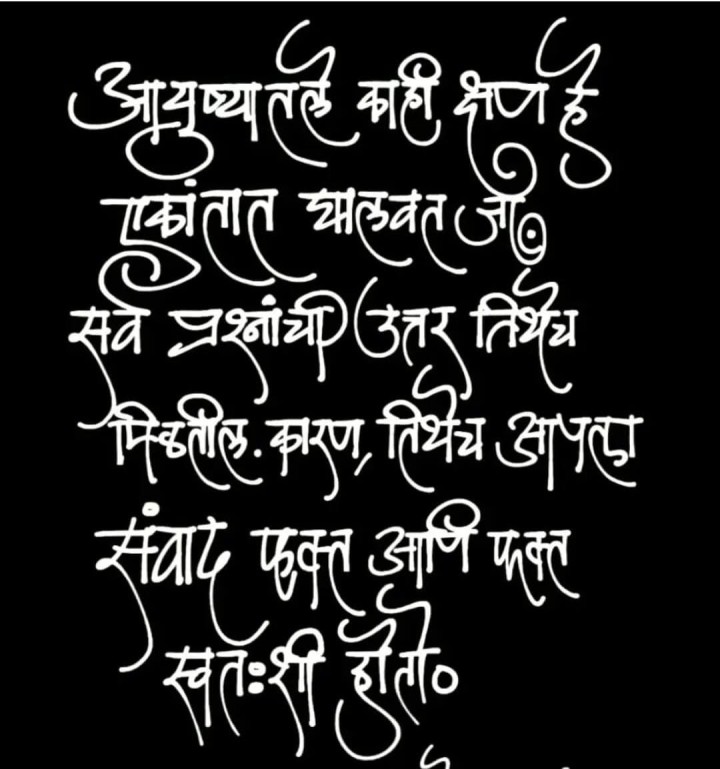 आयुष्यातले काही क्षण हे
एकांतात घालवत जा.
सर्व प्रश्नांची उत्तर तिथेच
मिळतील. कारण, तिथेच आपला
संवाद फक्त आणि फक्त
स्वतःशी होतो.